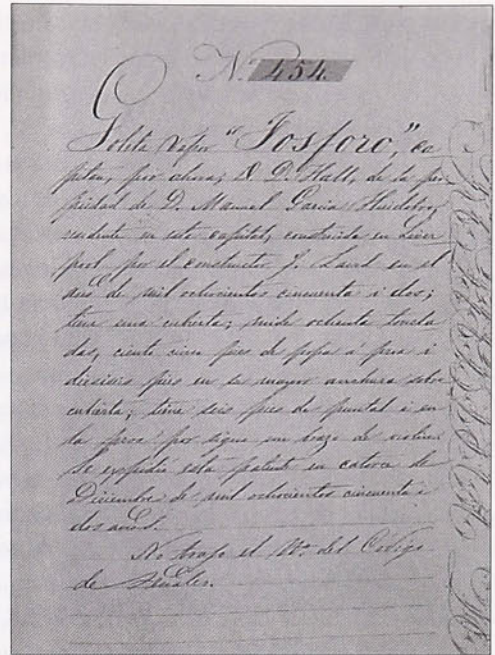 N. 454.
Goleta Vapor "Fosforo," ca
pitan, por ahora, D. D. Hall, de la pro
piedad de D. Manuel Garcia Huidobro,
residente en esta capital, construida en Liver
pool, por el constructor J. Laird en el
año de mil ochocientos cincuenta i dos;
tiene una cubierta; mide ochenta tonela
das, ciento cinco pies de popa á proa i
dieciseis pies en su mayor anchura sobre
cubierta; tiene seis pies de puntal i en
la proa por un de
Se expidió esta patente en catorce de
Diciembre de mil ochocientos cincuenta i
dos
No trajo el No. del Código
de Señales.